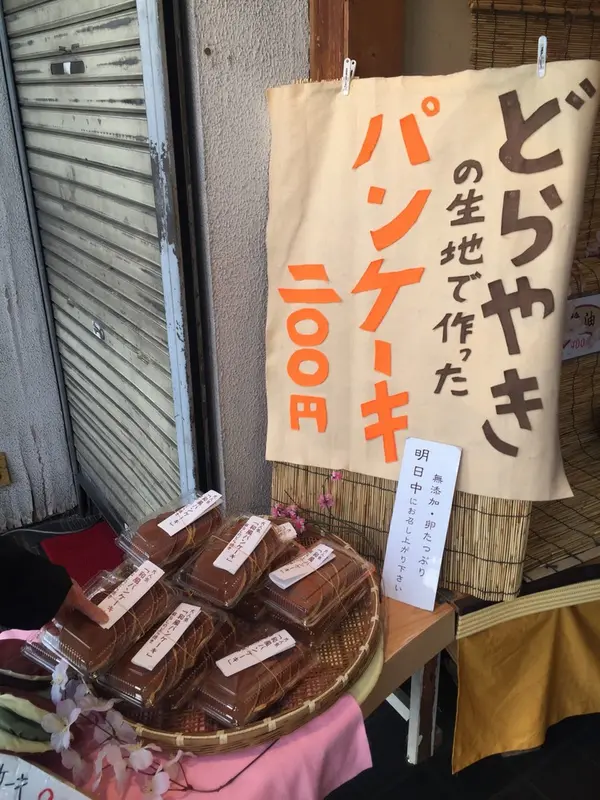 どらやき
の生地で作った
パンケーキ
二〇〇円
無添加・卵たっぷり
明日中にお召し上がり下さい
油
ケーキ